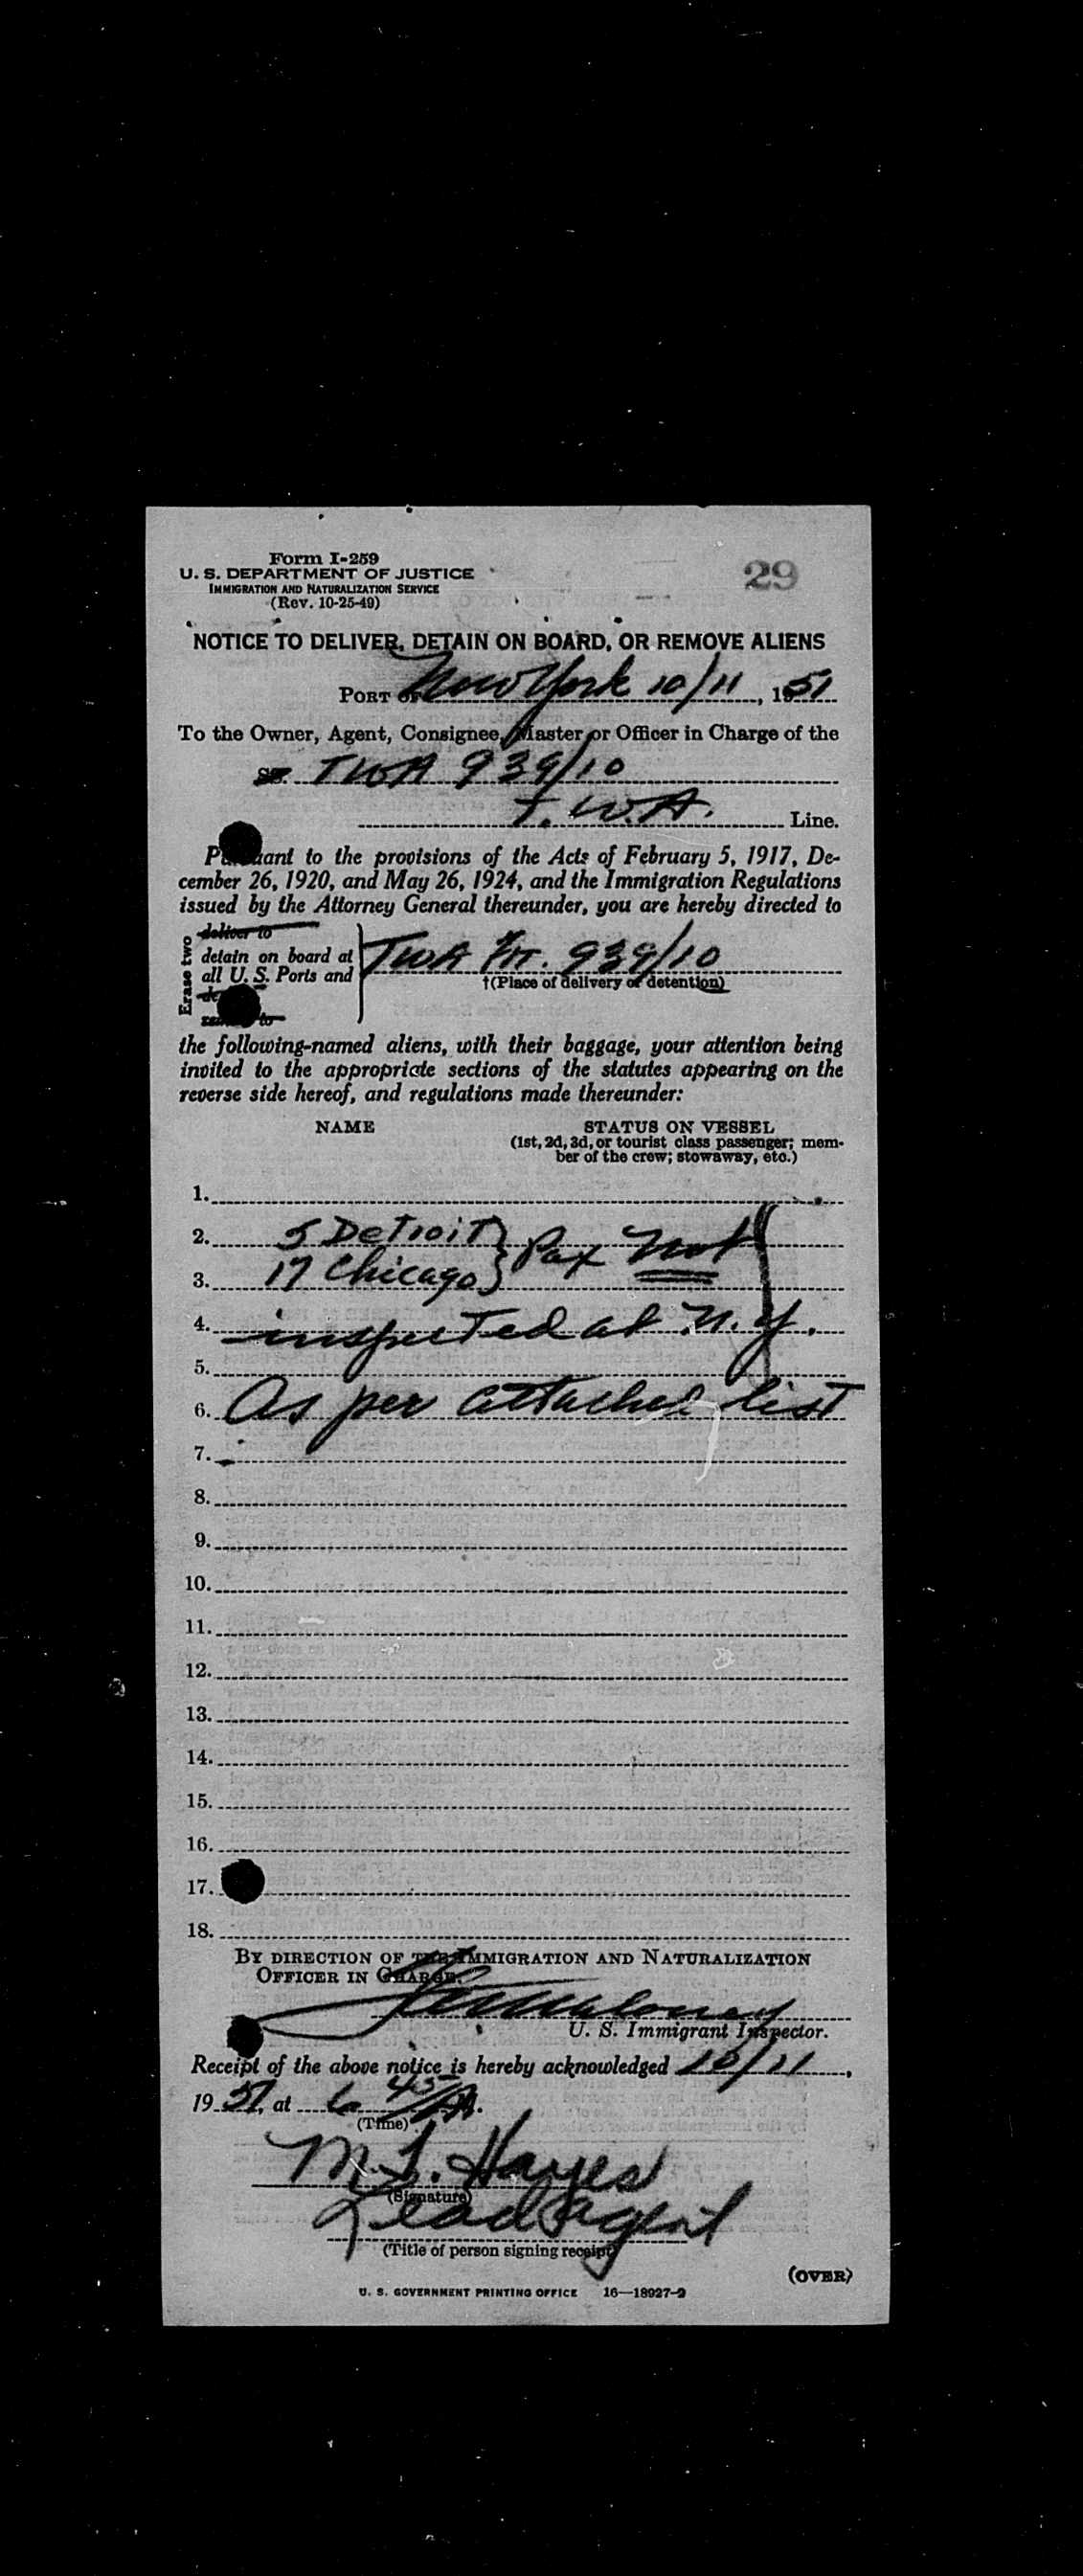 Form I-259
U. S. DEPARTMENT OF JUSTICE
IMMIGRATION AND NATURALIZATION SERVICE
(Rev. 10-25-49)
29
NOTICE TO DELIVER, DETAIN ON BOARD, OR REMOVE ALIENS
PORT OF New York 10/11, 1951
To the Owner, Agent, Consignee, Master or Officer in Charge of the
SS. TWA 939/10
T.W.A. Line.
Pursuant to the provisions of the Acts of February 5, 1917, De-
cember 26, 1920, and May 26, 1924, and the Immigration Regulations
issued by the Attorney General thereunder, you are hereby directed to
Erase two
deliver to
detain on board at
all U. S. Ports and
TWA Flt. 939/10
†(Place of delivery or detention)
to
the following-named aliens, with their baggage, your attention being
invited to the appropriate sections of the statutes appearing on the
reverse side hereof, and regulations made thereunder:
NAME
STATUS ON VESSEL
(1st, 2d, 3d, or tourist class passenger; mem-
ber of the crew; stowaway, etc.)
1.
2. 5 Detroit } Pax Not
3. 17 Chicago
4. inspected at N.Y.
5.
6. As per attached list
7.
8.
9.
10.
11.
12.
13.
14.
15.
16.
17.
18.
BY DIRECTION OF THE IMMIGRATION AND NATURALIZATION
OFFICER IN CHARGE.
U. S. Immigrant Inspector.
Receipt of the above notice is hereby acknowledged 10/11,
1951, at 6 45/A.
(Time)
M. L. Hayes
(Signature)
Lead Agent
(Title of person signing receipt)
(OVER)
U. S. GOVERNMENT PRINTING OFFICE 16—18927-2